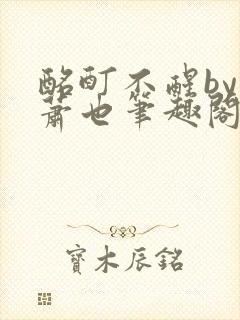 酩酊不醒by
萧也笔趣阁
寶木辰銘